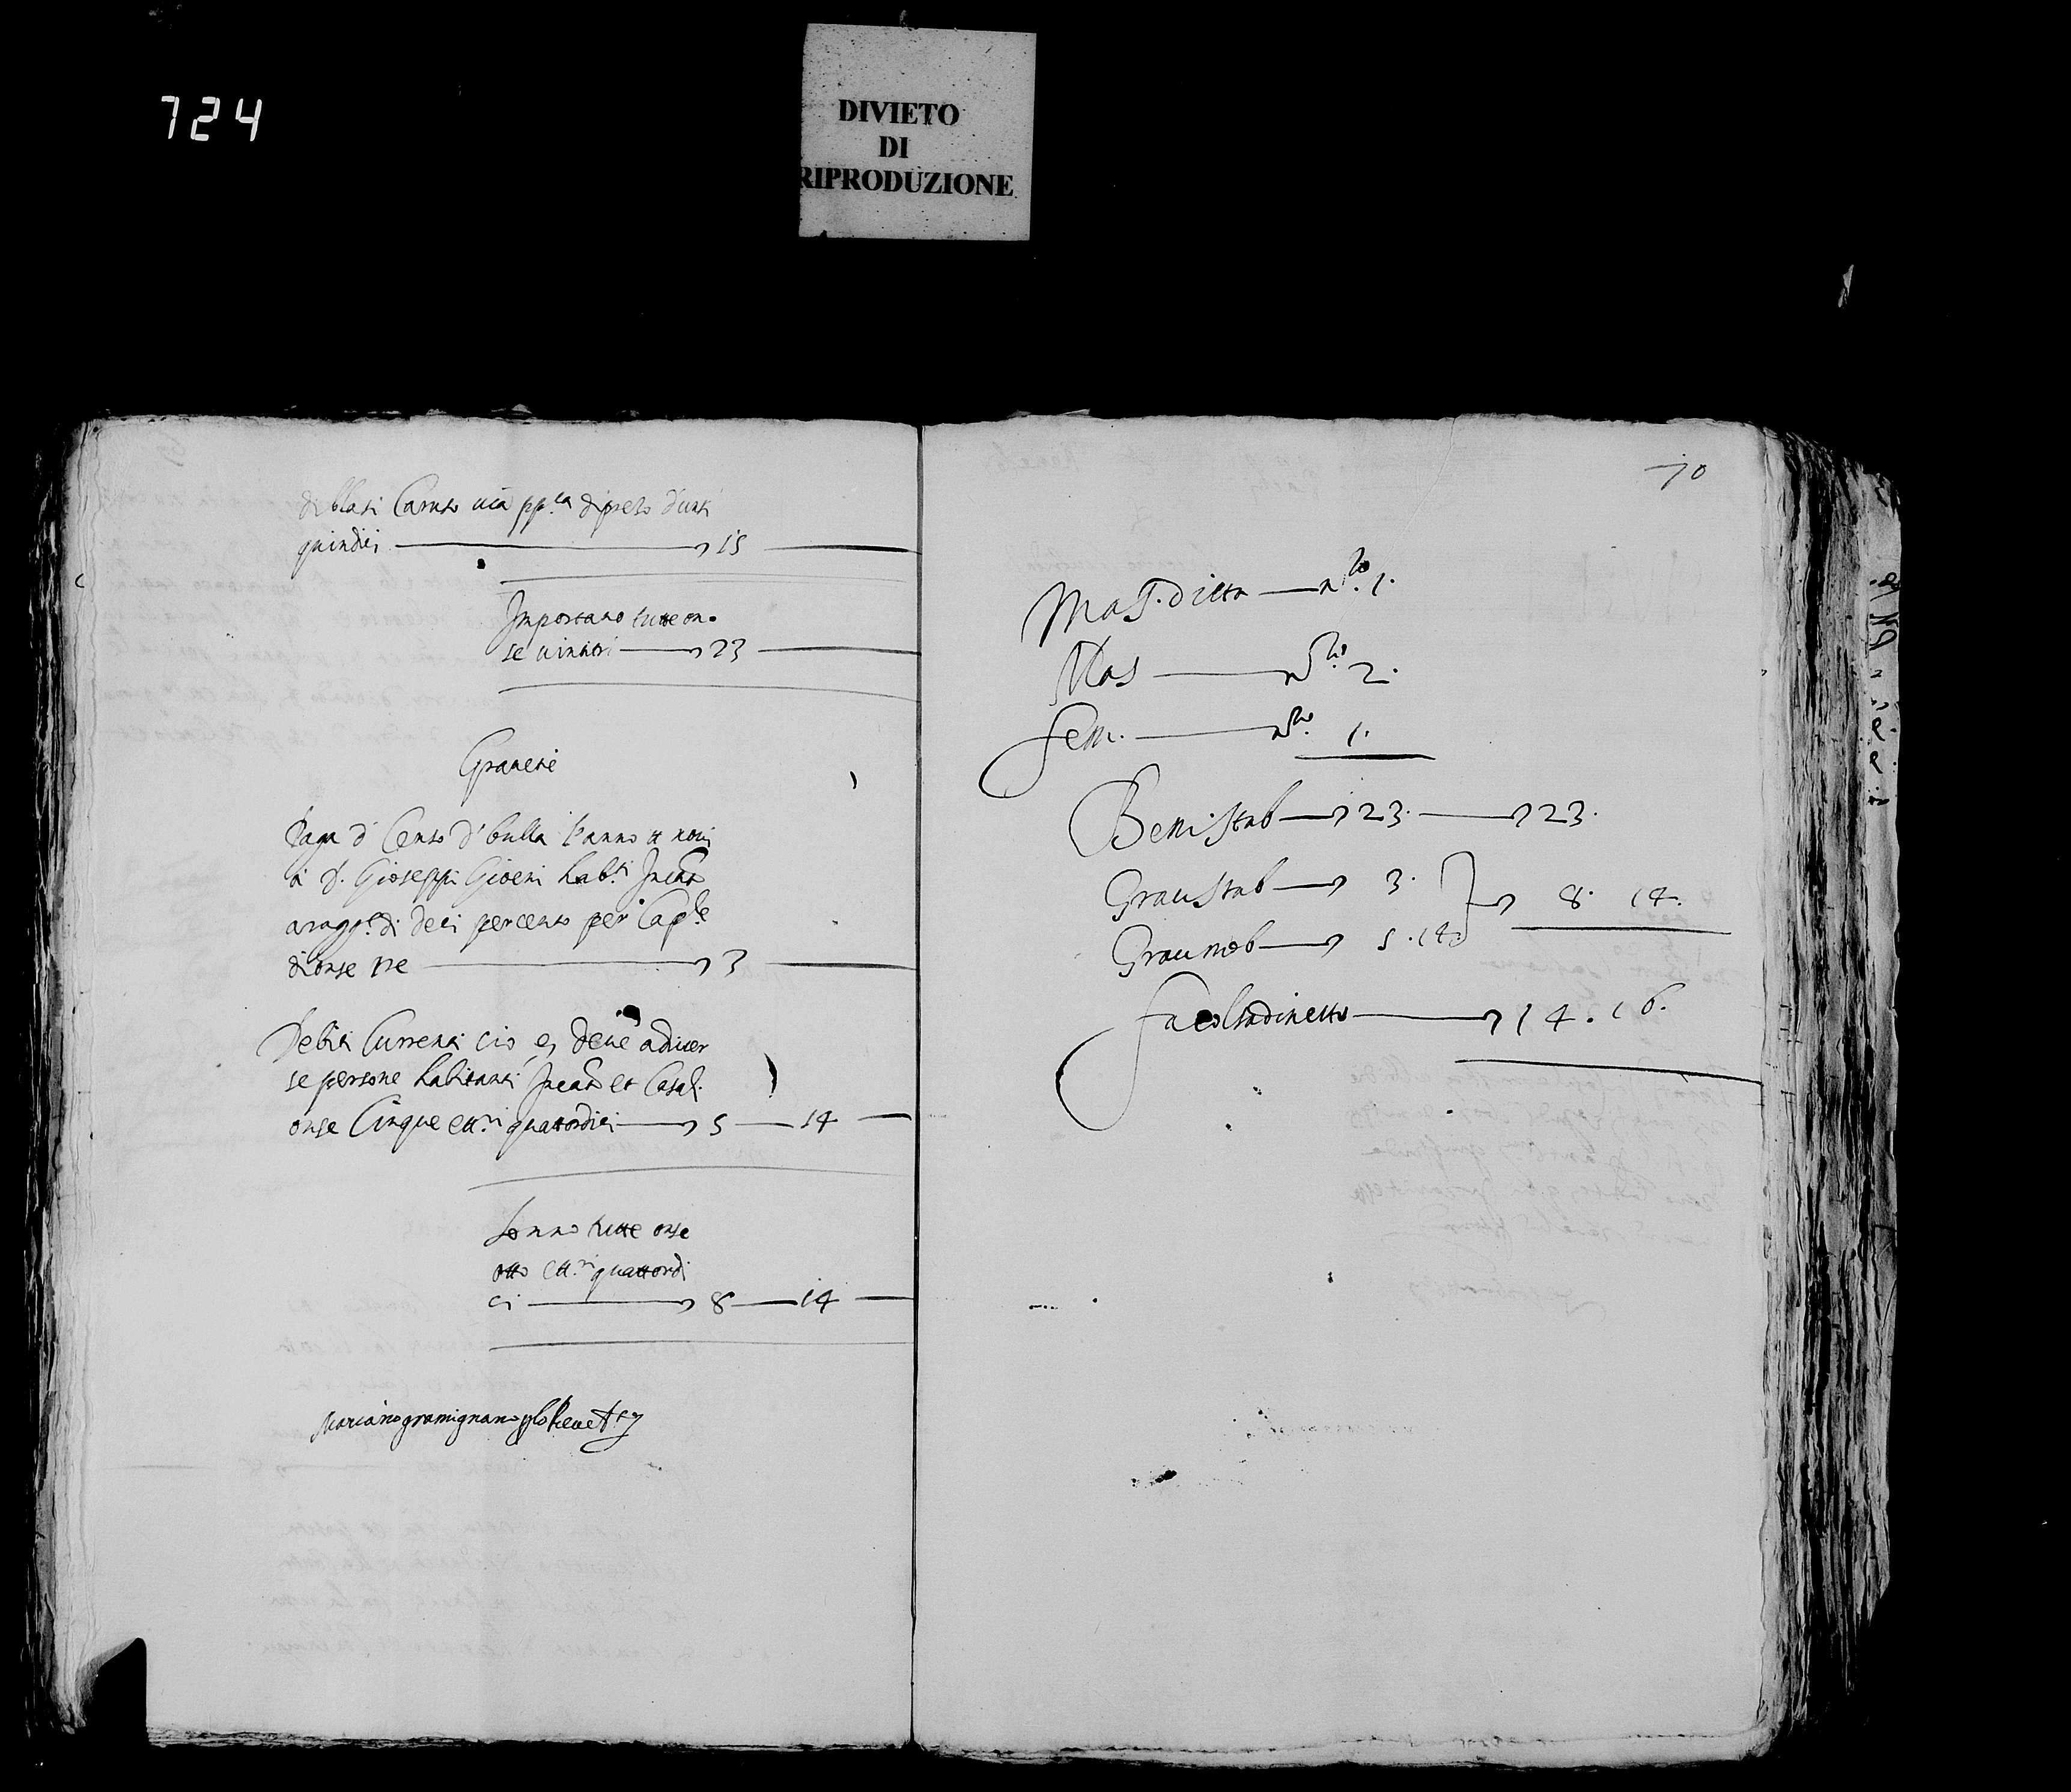 724
DIVIETO
DI
RIPRODUZIONE
di blasi Caruso via pp.ca di prezo d'unzi
quindici 15
Importano tutte on-
se vintitri 23
Gravezze
Paga d' Censo d' bulla l'anno a
à D. Gioseppi Gioeni hab.ti
a ragg.e di deci per cento per Cap.le
di onse tre 3
Debiti Currenti cio è, deve a diver
se persone habitanti et Casali
onse Cinque et t.ri quattordici 5 14
Sonno tutte onse
otto et t.ri quattordi
ci 8 14
Mariano gramignano
70
Mas. ditta n.ro 1.
Mas n.ro 2.
fem. n.ro 1.
Beni stab 23. 23.
Grau stab 3.
8. 14.
Grau mob 5. 14
facolta di netto 14. 16.